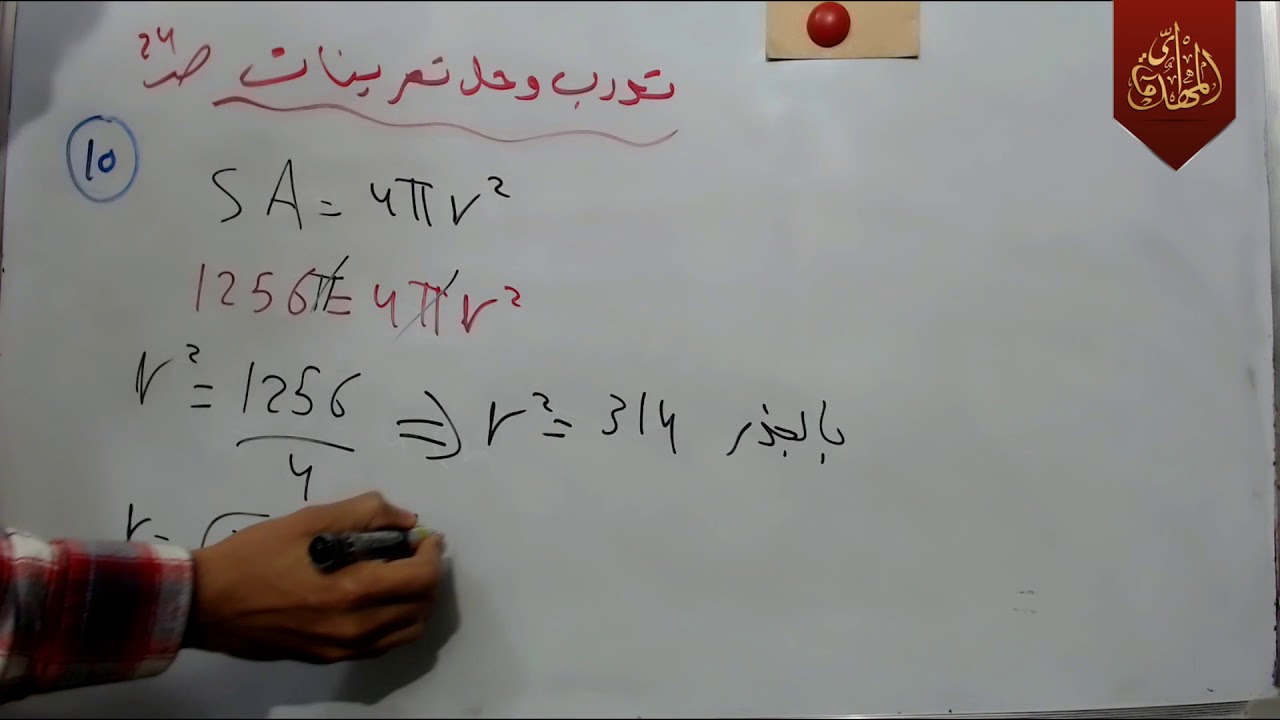 تدرب وحل تمرينات صـ 24
10
SA = 4πr²
1256π = 4πr²
r² = 1256/4 ⇒ r² = 314 بالجذر
r =
المهندماي